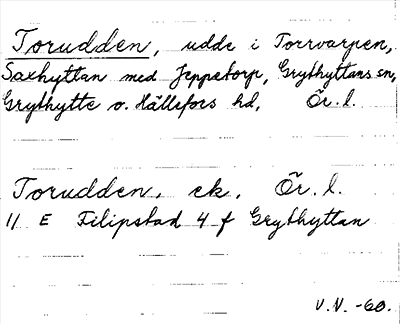 Torudden, udde i Torrvarpen,
Saxhyttan med Jeppetorp, Grythyttans sn,
Grythytte o. Hällefors hd, Ör. l.
Torudden, ek, Ör. l.
11 E Filipstad 4 f Grythyttan
V.N. -60.